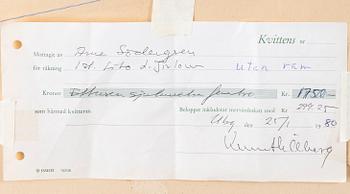 Kvittens nr
Mottagit av Arne Södergren
för räkning 1 st. Lito d. Jivlow utan ram
Kronor Ettusen sjuhundra femtio Kr. 1750 -
som härmed kvitteras Beloppet inkluderar mervärdeskatt med Kr. 299.25
Ubg den 25/1 1980